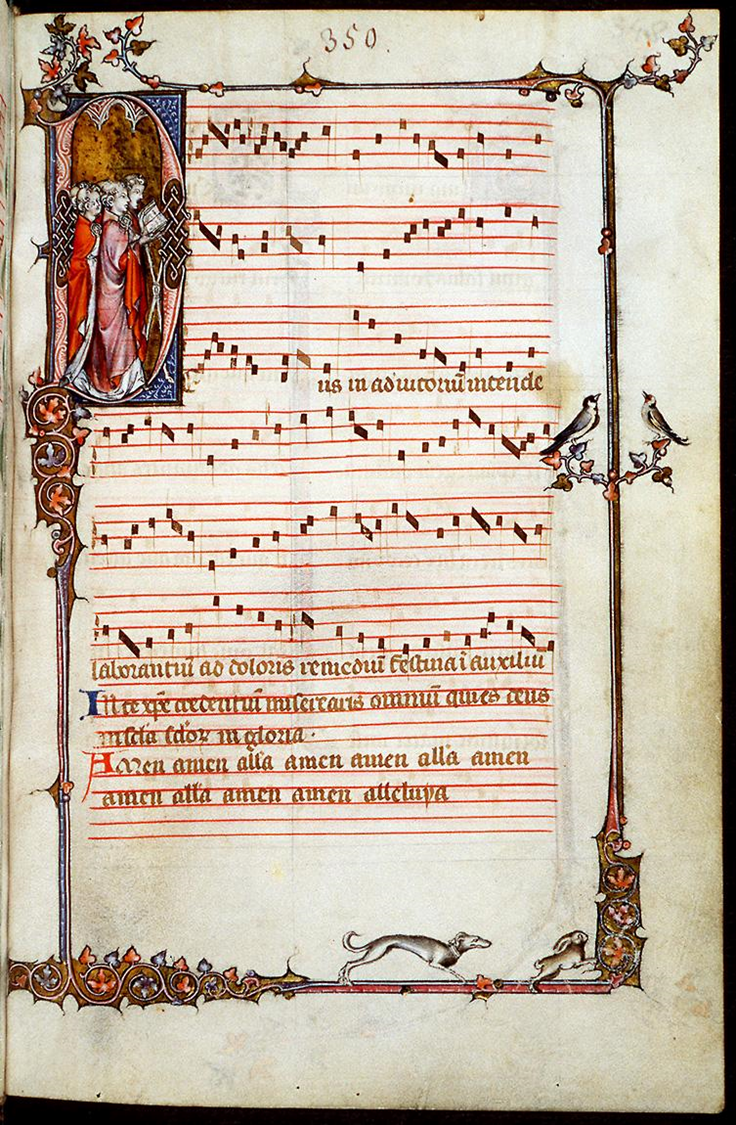 350.
us in adiutoriū intende
laborantiū ad doloris remediū festina ī auxiliū
In te xp̄e credentiū miserearis omniū qui es deus
in sc̄la sc̄lor in gloria.
Amen amen all'a amen amen all'a amen
amen all'a amen amen alleluya